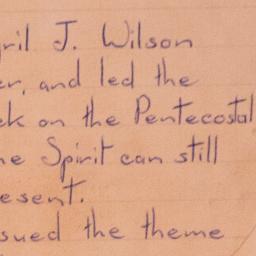 ril J. Wilson
er, and led the
ek on the Pentecostal
he Spirit can still
esent.
sued the theme